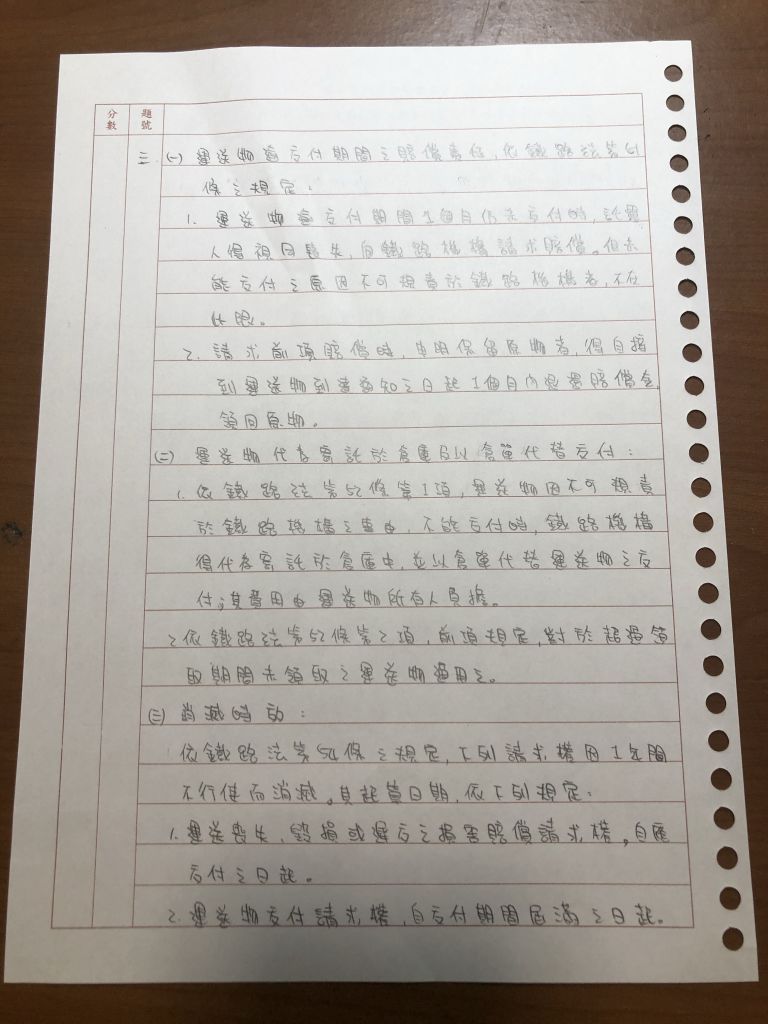 分數
題號
三 (一) 運送物逾交付期間之賠償責任,依鐵路法第51
條之規定:
1. 運送物逾交付期間1個月仍未交付時,託運
人得視同喪失,向鐵路機構請求賠償。但未
能交付之原因不可歸責於鐵路機構者,不在
此限。
2. 請求前項賠償時,申明保留原物者,得自接
到運送物到達通知之日起1個月內退還賠償金,
領回原物。
(二) 運送物代為寄託於倉庫及以倉單代替交付:
1. 依鐵路法第52條第1項,運送物因不可歸責
於鐵路機構之事由,不能交付時,鐵路機構
得代為寄託於倉庫中,並以倉單代替運送物之交
付;其費用由運送物所有人負擔。
2. 依鐵路法第52條第2項,前項規定,對於超過領
取期間未領取之運送物適用之。
(三) 消滅時效:
依鐵路法第54條之規定,下列請求權因1年間
不行使而消滅。其起算日期,依下列規定:
1. 運送喪失、毀損或遲交之損害賠償請求權,自應
交付之日起。
2. 運送物交付請求權,自交付期間屆滿之日起。